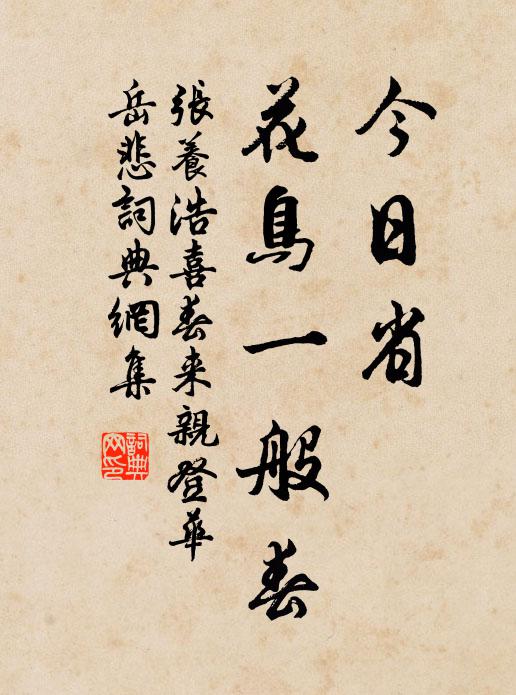 今日省
花鳥一般春
張養浩喜春来親登華
岳悲詞典網集
詞典
网印